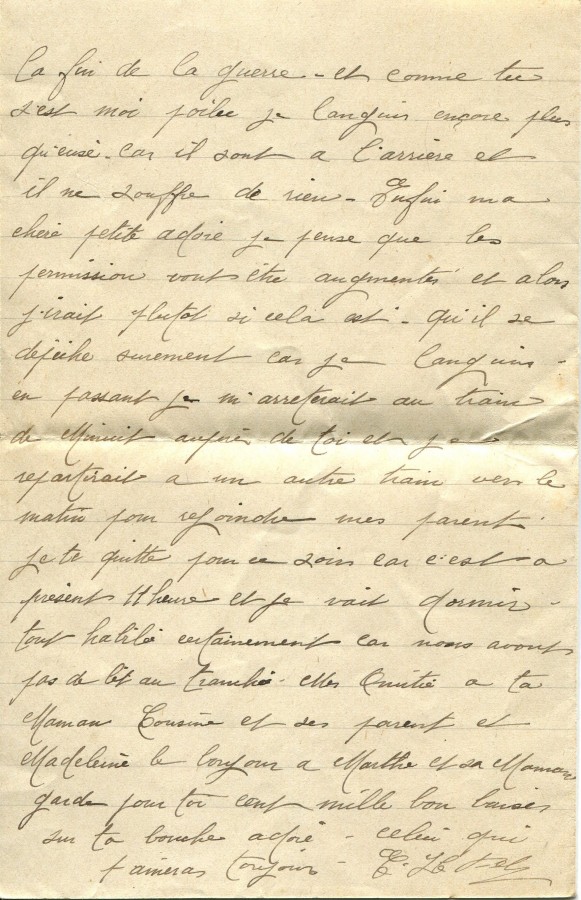 la fin de la guerre - et comme tu
s'est moi poilu je languis encore plus
qu'eusé - car il sont a l'arrière et
il ne souffre de rien - Enfin ma
chere petite adoré je pense que les
permission vont être augmenté et alors
j'irait plutot si cela est - qu'il se
dépèche surement car je languis -
en passant je m'arreterait au train
de Minuit auprès de toi et je
repartirait a un autre train vers le
matin pour rejoindre mes parent
je te quitte pour ce soir car c'est a
présent 11 heure et je vait dormir -
tout habilé certainement car nous avont
pas de lit au tranché - Mes Amitié a ta
Maman Cousine et ses parent et
Madeleine le bonjour a Marthe et sa Maman
garde pour toi cent mille bon baiser
sur ta bouche adoré - celui qui
t'aimeras toujour -